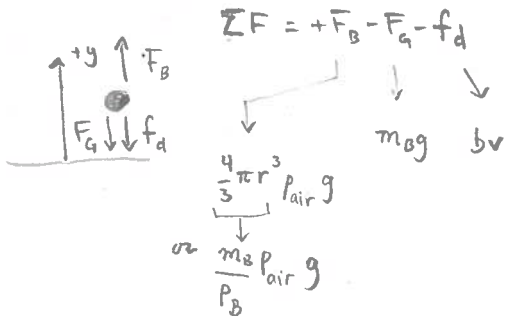 ΣF = +F_B - F_G - f_d
+y
F_B
F_G f_d
m_B g bv
4/3 πr³ ρ_air g
or m_B/ρ_B ρ_air g